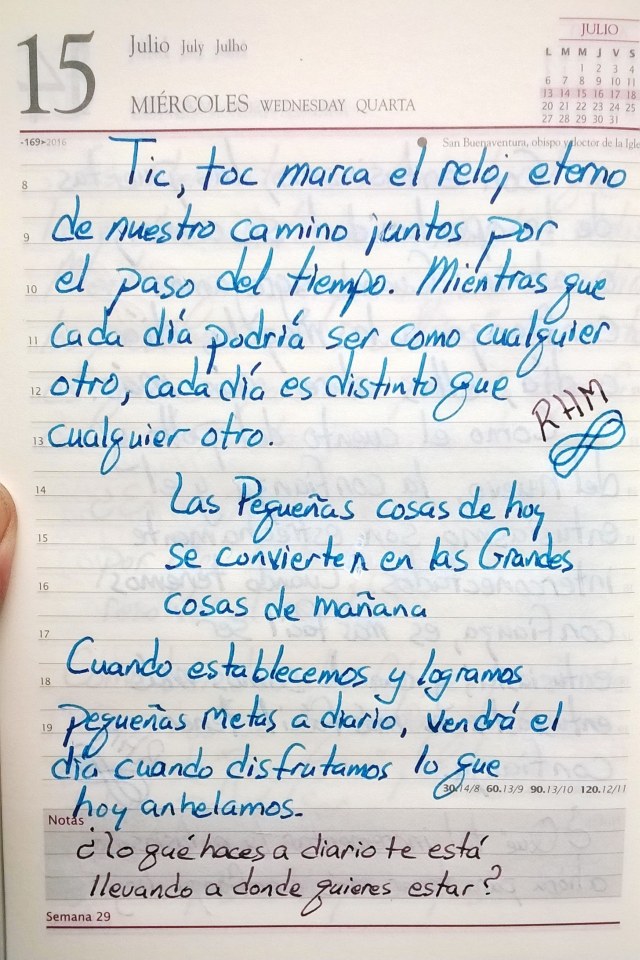 15
Julio July Julho
MIÉRCOLES WEDNESDAY QUARTA
JULIO
L M M J V S
1 2 3 4
6 7 8 9 10 11
13 14 15 16 17 18
20 21 22 23 24 25
27 28 29 30 31
-169▸2016
San Buenaventura, obispo y doctor de la Igle
8 Tic, toc marca el reloj eterno
9 de nuestro camino juntos por
10 el paso del tiempo. Mientras que
11 cada día podriá ser como cualquier
12 otro, cada día es distinto que
13 cualquier otro.
RHM
14 Las Pequeñas cosas de hoy
15 se convierten en las Grandes
16 cosas de mañana
17
18 Cuando establecemos y logramos
19 pequeñas metas a diario, vendrá el
día cuando disfrutamos lo que
30.14/8 60.13/9 90.13/10 120.12/11
hoy anhelamos.
Notas
¿lo qué haces a diario te está
llevando a donde quieres estar?
Semana 29